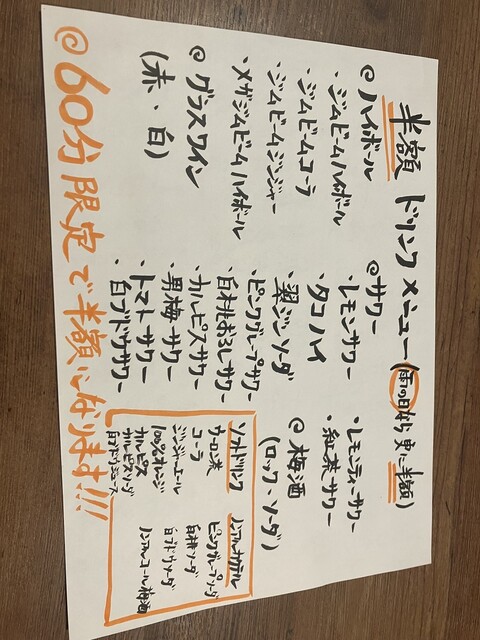 半額 ドリンクメニュー(雨の日なら 更に半額)
@ハイボール
・ジムビームハイボール
・ジムビームコーラ
・ジムビームジンジャー
・メガジムビームハイボール
@グラスワイン
(赤・白)
@サワー
・レモンサワー
・タコハイ
・翠ジンソーダ
・ピンクグレープサワー
・白桃おろしサワー
・カルピスサワー
・男梅サワー
・トマトサワー
・白ブドウサワー
・レモンティーサワー
・紅茶サワー
@梅酒
(ロック・ソーダ)
ソフトドリンク
ウーロン茶
コーラ
ジンジャーエール
100%オレンジ
カルピス
カルピスソーダ
白ブドウジュース
ノンアルカクテル
ピンクグレープソーダ
白桃ソーダ
白ブドウソーダ
ノンアルコール梅酒
@60分限定で半額になります!!!